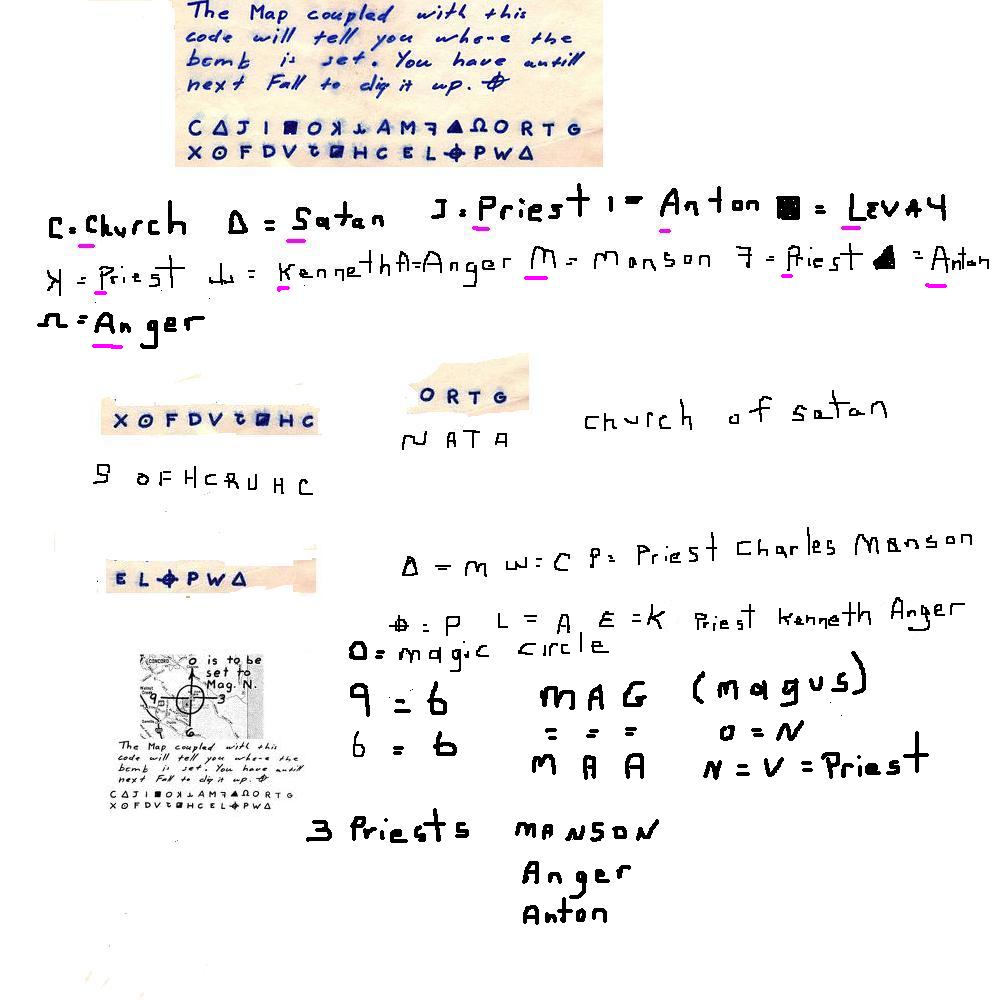 The Map coupled with this
code will tell you where the
bomb is set. You have untill
next Fall to dig it up. ⌖
C Δ J I ■ O ꓘ ⅄ A M ꟻ ▲ Ω O R T G
X ⊙ F D V ㄛ ◪ H C E L ⌖ P W Δ
C = Church Δ = Satan J = Priest I = Anton ■ = LEVAY
ꓘ = Priest = Kenneth A = Anger M = Manson 7 = Priest ▲ = Anton
Ω = Anger
O R T G
X ⊙ F D V H C
N A T A church of satan
S O F H C R U H C
Δ = M W = C P = Priest Charles Manson
E L ⌖ P W Δ
⌖ = P L = A E = K Priest Kenneth Anger
O = magic circle
CONCORD 0 is to be
set to
Mag. N.
9 3
6
9 = 6 M A G (magus)
= = = O = N
6 = 6 M A A N = V = Priest
The Map coupled with this
code will tell you where the
bomb is set. You have untill
next Fall to dig it up. ⌖
C Δ J I ■ O ꓘ ⅄ A M ꟻ ▲ Ω O R T G
X ⊙ F D V ㄛ ◪ H C E L ⌖ P W Δ
3 Priests MANSON
Anger
Anton